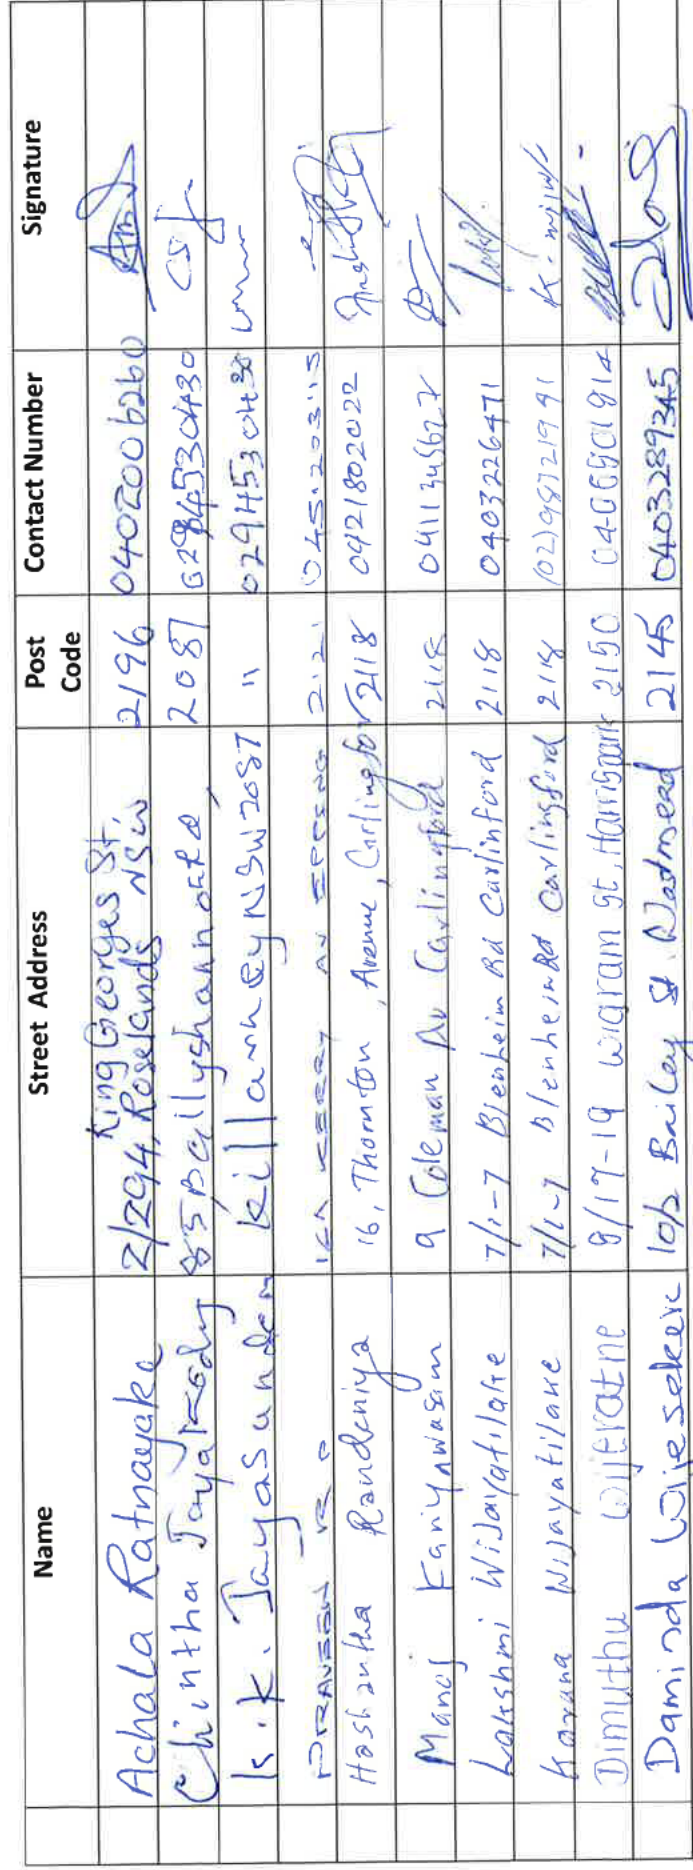 Name Street Address Post Code Contact Number Signature
Achala Ratnayake 2/294, King Georges St, Roselands NSW 2196 0402006260
Chintha Jayakody 85 Ballyshannon Rd, 2087
K.K. Jayasundera Killarney NSW 2087 " 0294530430
PRAVEEN K. 16A KERRY AV EPPING 2121
Hashantha Randeniya 16, Thornton Avenue, Carlingford 2118 0421802022
Manoj Kariyawasam 9 Coleman Av Carlingford 2118
Lakshmi Wijayatilake 7/1-7 Blenheim Rd Carlinford 2118 0403226471
Karuna Wijayatilake 7/1-7 Blenheim Rd Carlingford 2118 (02) 98721991 K. Wijay
Dimuthu Wijeratne 9/17-19 Wigram St, Harrispark 2150
Daminda Wijesekera 10/2 Bailey St Westmead 2145 0403289345